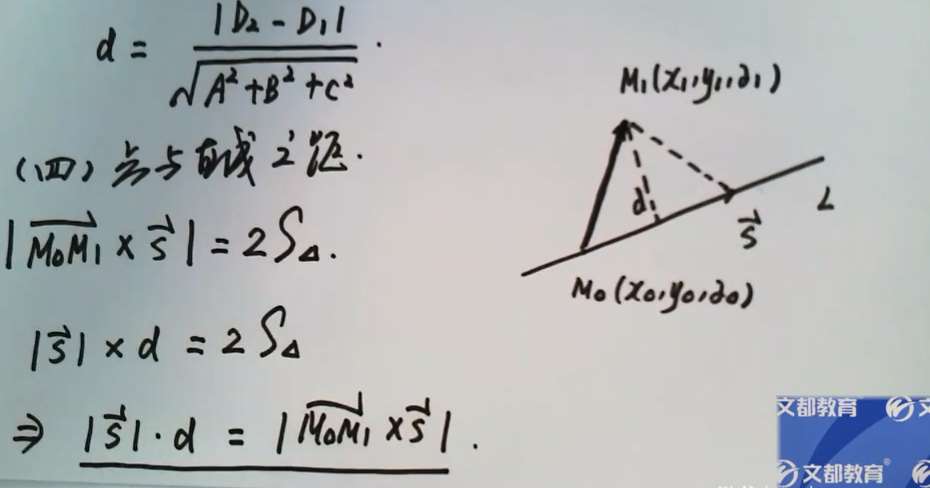 d = |D₂ - D₁| / √(A² + B² + C²) .
(四) 点与直线之距.
|M₀M₁→ × s→| = 2S△.
|s→| × d = 2S△
⇒ |s→| · d = |M₀M₁→ × s→| .
M₁(x₁,y₁,z₁)
d
s→
L
M₀(x₀,y₀,z₀)
文都教育
文
文都教育®